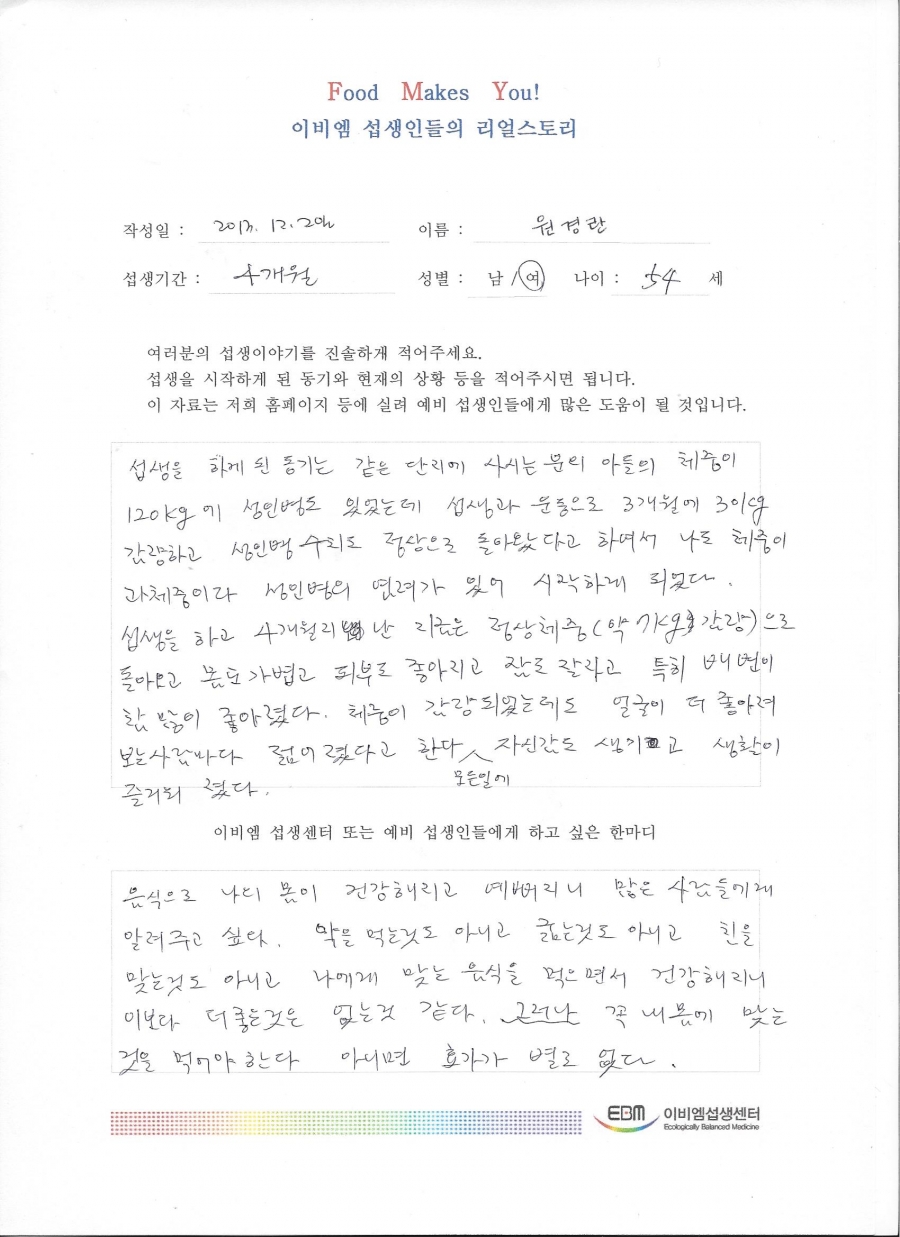 Food Makes You!
이비엠 섭생인들의 리얼스토리
작성일 : 2013. 12. 20 이름 : 원경란
섭생기간 : 4개월 성별 : 남 / 여 나이 : 54 세
여러분의 섭생이야기를 진솔하게 적어주세요.
섭생을 시작하게 된 동기와 현재의 상황 등을 적어주시면 됩니다.
이 자료는 저희 홈페이지 등에 실려 예비 섭생인들에게 많은 도움이 될 것입니다.
섭생을 하게 된 동기는 같은 단지에 사시는 분의 아들의 체중이
120kg에 성인병도 있었는데 섭생과 운동으로 3개월에 30kg
감량하고 성인병 수치도 정상으로 돌아왔다고 하여서 나도 체중이
과체중이라 성인병의 염려가 있어 시작하게 되었다.
섭생을 하고 4개월이 지난 지금은 정상체중(약 7kg 감량)으로
돌아오고 몸도 가볍고 피부도 좋아지고 잠도 잘자고 특히 배변이
참 많이 좋아졌다. 체중이 감량되었는데도 얼굴이 더 좋아져
보는사람마다 젊어 졌다고 한다 모든일에 자신감도 생기고 생활이
즐거워 졌다.
이비엠 섭생센터 또는 예비 섭생인들에게 하고 싶은 한마디
음식으로 나의 몸이 건강해지고 예뻐지니 많은 사람들에게
알려주고 싶다. 약을 먹는것도 아니고 굶는것도 아니고 침을
맞는것도 아니고 나에게 맞는 음식을 먹으면서 건강해지니
이보다 더좋은것은 없는것 같다. 그러나 꼭 내몸에 맞는
것을 먹어야한다 아니면 효과가 별로 없다.
EBM 이비엠섭생센터
Ecologically Balanced Medicine